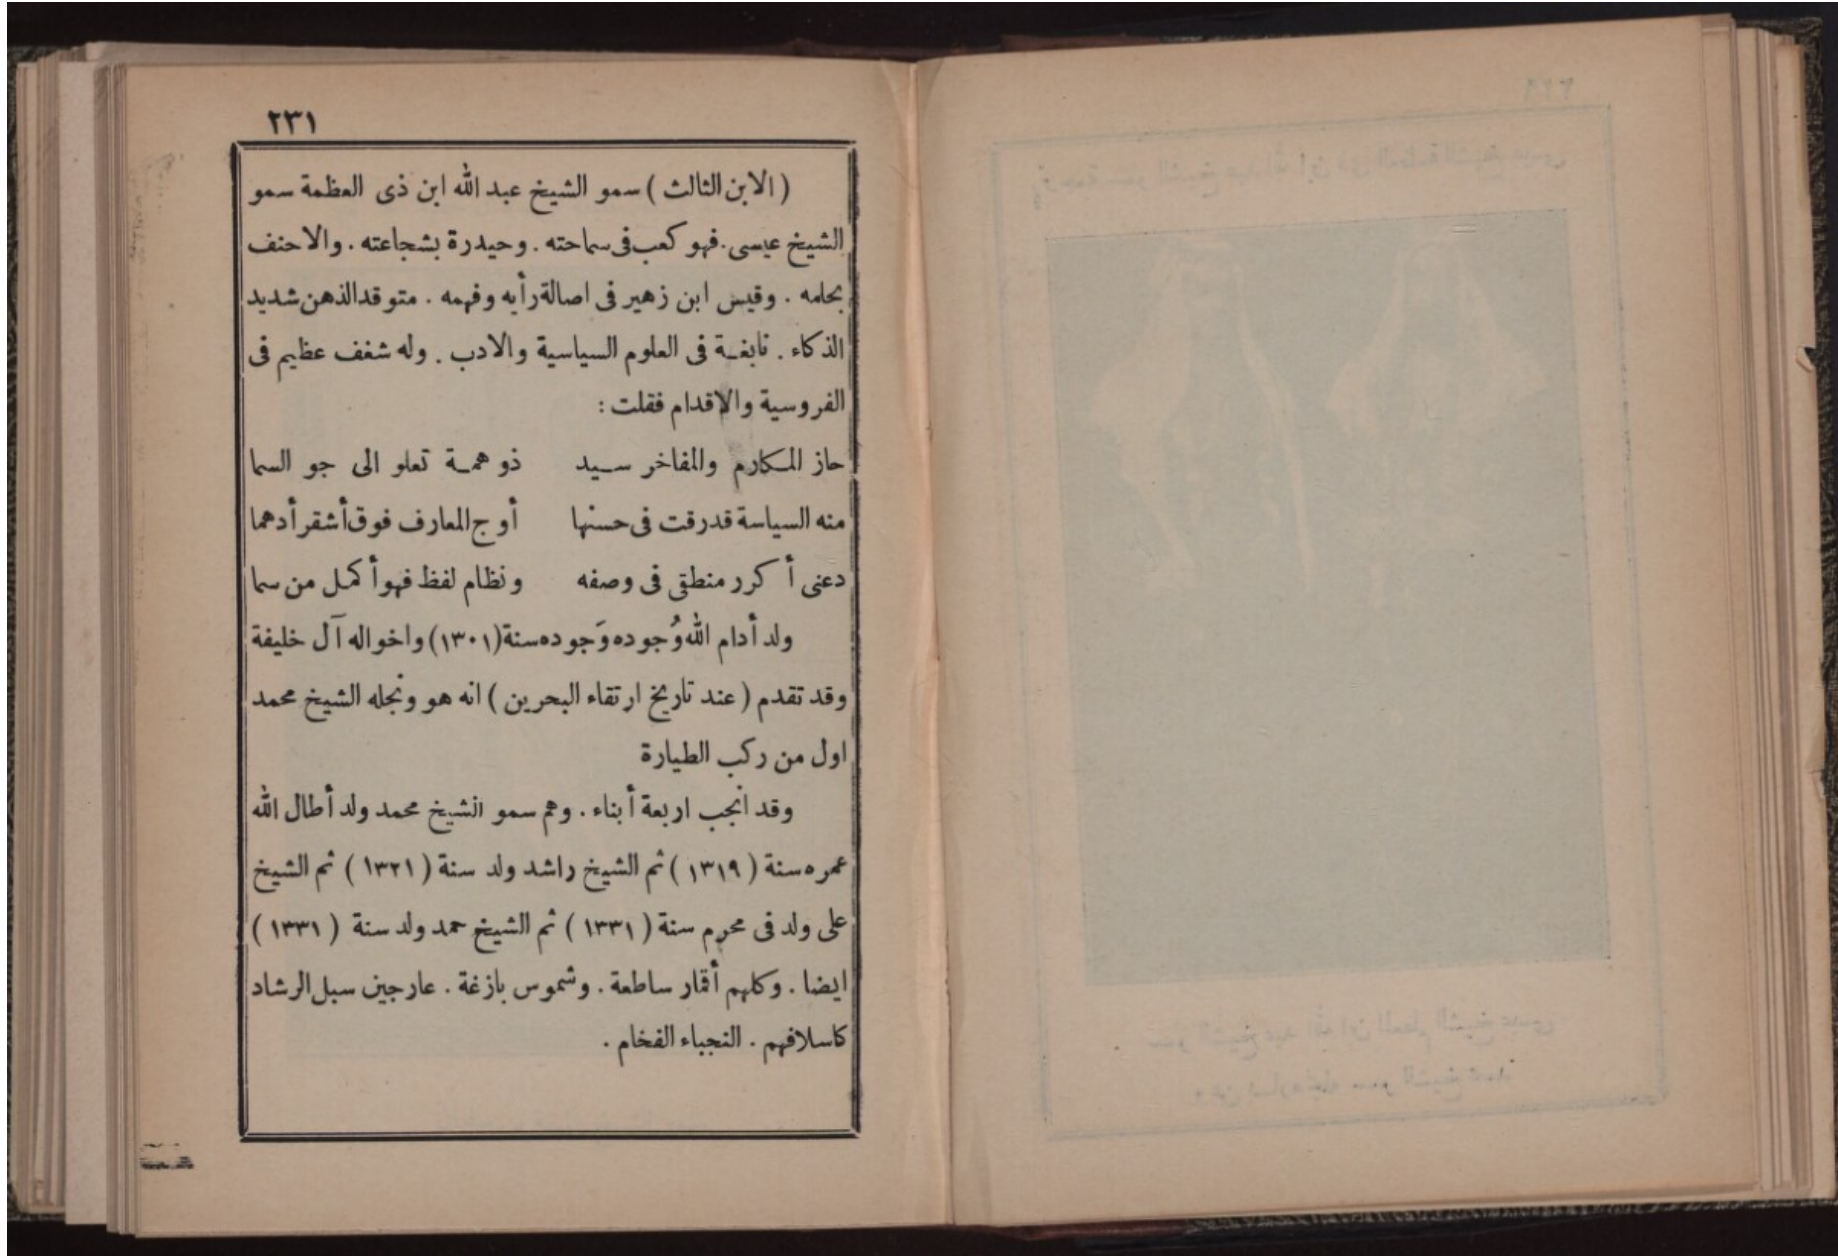 ٢٣١
( الابن الثالث ) سمو الشيخ عبد الله ابن ذى العظمة سمو
الشيخ عيسى . فهو كعب فى سماحته . وحيدرة بشجاعته . والاحنف
بحلمه . وقيس ابن زهير فى اصالة رأيه وفهمه . متوقد الذهن شديد
الذكاء . نابغة فى العلوم السياسية والادب . وله شغف عظيم فى
الفروسية والاقدام فقلت :
حاز المكارم والمفاخر سيد ذو همة تعلو الى جو السما
منه السياسة قد رقت فى حسنها أوج المعارف فوق أشقر أدهما
دعنى أكرر منطقى فى وصفه ونظام لفظ فهو أكمل من سما
ولد أدام الله وُجوده وَجوده سنة (١٣٠١) واخواله آل خليفة
وقد تقدم ( عند تاريخ ارتقاء البحرين ) انه هو ونجله الشيخ محمد
اول من ركب الطيارة
وقد انجب اربعة أبناء . وهم سمو الشيخ محمد ولد أطال الله
عمره سنة ( ١٣١٩ ) ثم الشيخ راشد ولد سنة ( ١٣٢١ ) ثم الشيخ
على ولد فى محرم سنة ( ١٣٣١ ) ثم الشيخ حمد ولد سنة ( ١٣٣١ )
ايضا . وكلهم أقمار ساطعة . وشموس بازغة . عارجين سبل الرشاد
كاسلافهم . النجباء الفخام .